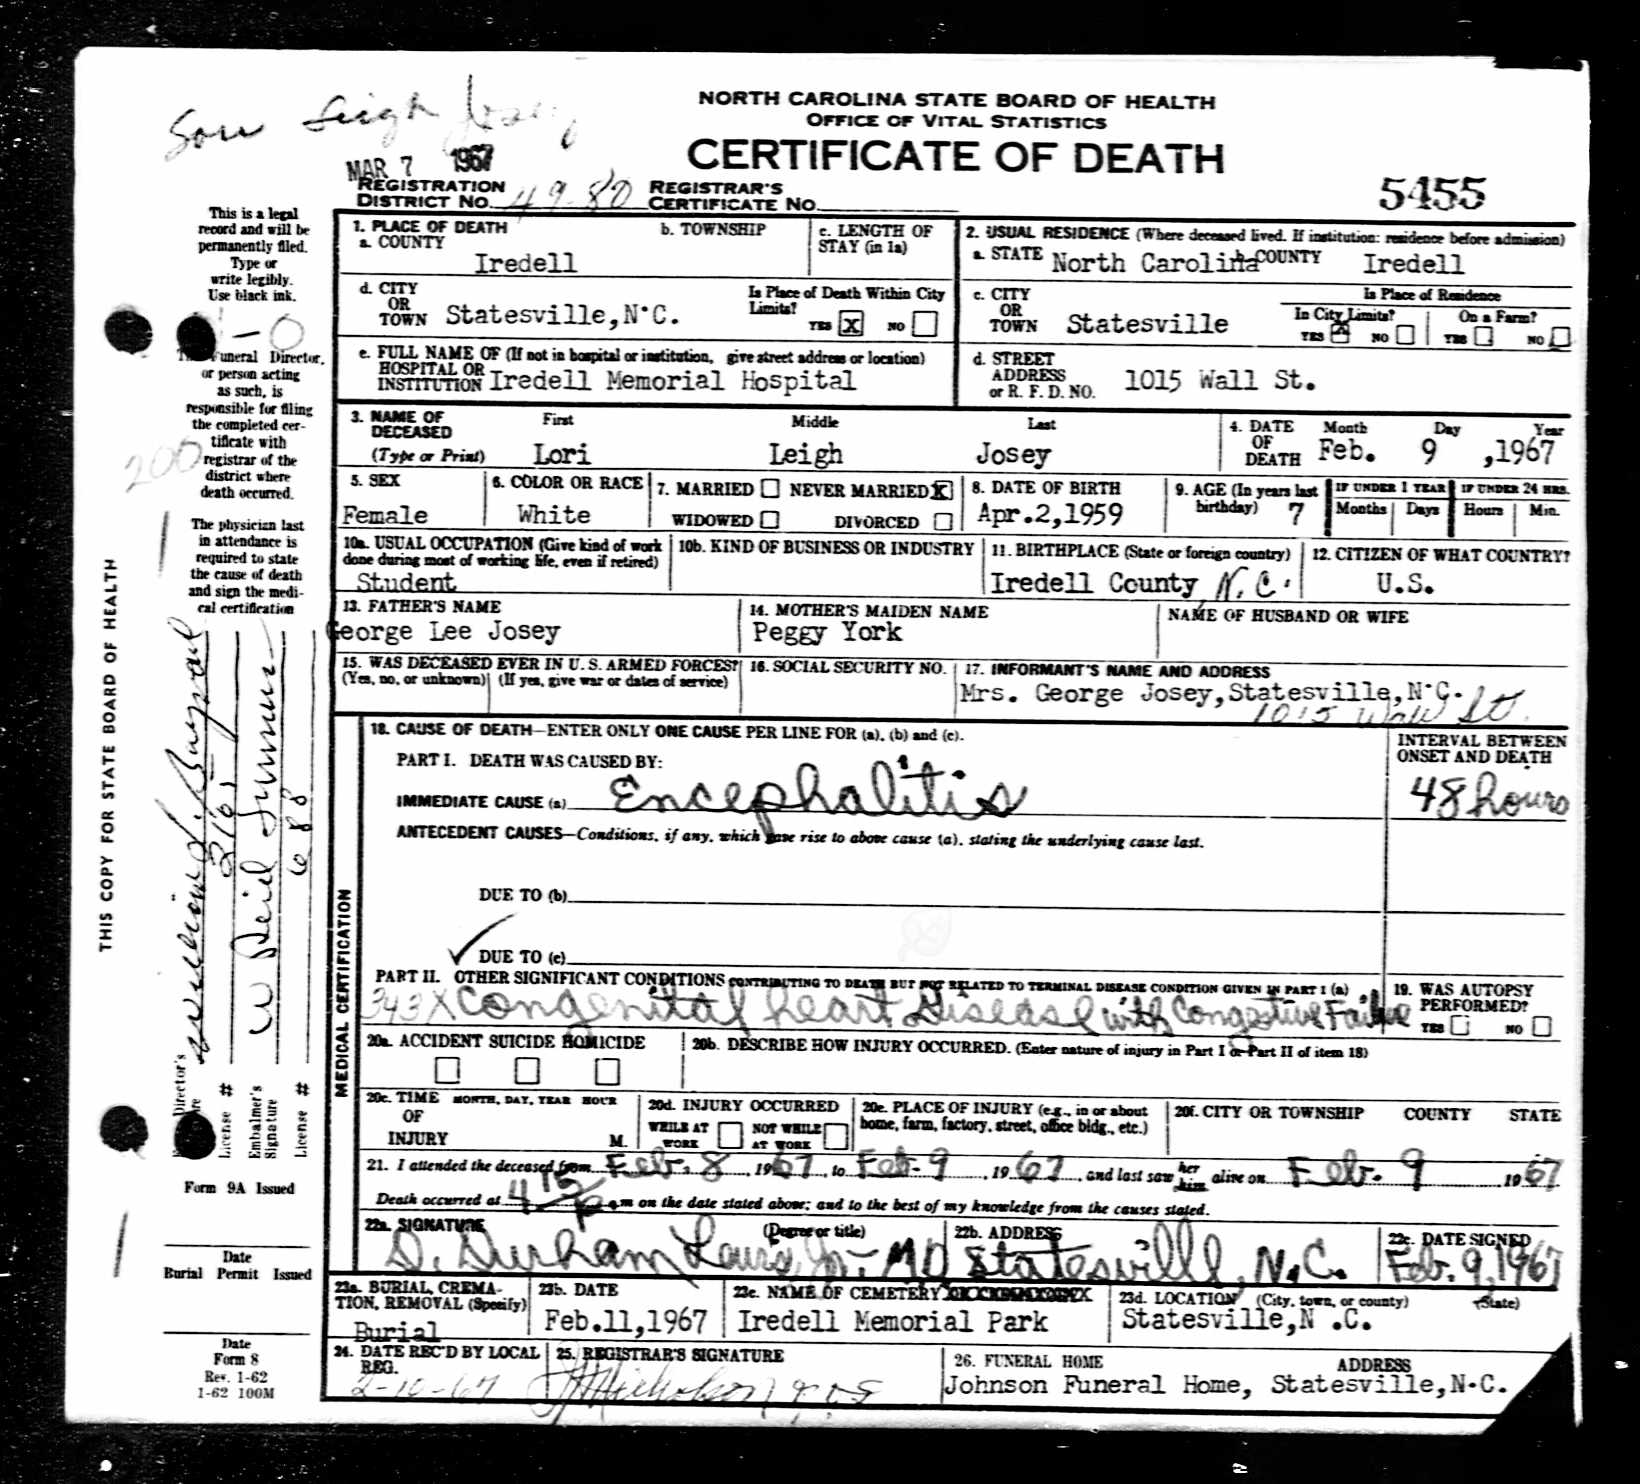 Lori Leigh Josey
NORTH CAROLINA STATE BOARD OF HEALTH
OFFICE OF VITAL STATISTICS
CERTIFICATE OF DEATH
MAR 7 1967
REGISTRATION DISTRICT No. 49-80 REGISTRAR'S CERTIFICATE No.
5455
This is a legal
record and will be
permanently filed.
Type or
write legibly.
Use black ink.
Funeral Director,
or person acting
as such, is
responsible for filing
the completed cer-
tificate with
registrar of the
district where
death occurred.
200
The physician last
in attendance is
required to state
the cause of death
and sign the medi-
cal certification
THIS COPY FOR STATE BOARD OF HEALTH
1. PLACE OF DEATH
a. COUNTY Iredell
b. TOWNSHIP
c. LENGTH OF STAY (in 1a)
2. USUAL RESIDENCE (Where deceased lived. If institution: residence before admission)
a. STATE North Carolina b. COUNTY Iredell
d. CITY OR TOWN Statesville, N.C.
Is Place of Death Within City Limits?
YES X NO
c. CITY OR TOWN Statesville
Is Place of Residence
In City Limits? YES X NO
On a Farm? YES NO
e. FULL NAME OF (If not in hospital or institution, give street address or location)
HOSPITAL OR
INSTITUTION Iredell Memorial Hospital
d. STREET ADDRESS or R. F. D. NO. 1015 Wall St.
3. NAME OF DECEASED (Type or Print)
First Middle Last
Lori Leigh Josey
4. DATE OF DEATH Month Day Year
Feb. 9 ,1967
5. SEX Female
6. COLOR OR RACE White
7. MARRIED NEVER MARRIED X
WIDOWED DIVORCED
8. DATE OF BIRTH Apr.2,1959
9. AGE (In years last birthday) 7
IF UNDER 1 YEAR Months Days
IF UNDER 24 HRS. Hours Min.
10a. USUAL OCCUPATION (Give kind of work done during most of working life, even if retired)
Student
10b. KIND OF BUSINESS OR INDUSTRY
11. BIRTHPLACE (State or foreign country)
Iredell County N.C.
12. CITIZEN OF WHAT COUNTRY?
U.S.
13. FATHER'S NAME
George Lee Josey
14. MOTHER'S MAIDEN NAME
Peggy York
NAME OF HUSBAND OR WIFE
15. WAS DECEASED EVER IN U. S. ARMED FORCES?
(Yes, no, or unknown) (If yes, give war or dates of service)
16. SOCIAL SECURITY NO.
17. INFORMANT'S NAME AND ADDRESS
Mrs. George Josey, Statesville, N.C.
1015 Wall St.
MEDICAL CERTIFICATION
18. CAUSE OF DEATH—ENTER ONLY ONE CAUSE PER LINE FOR (a), (b) and (c).
INTERVAL BETWEEN ONSET AND DEATH
PART I. DEATH WAS CAUSED BY:
IMMEDIATE CAUSE (a) Encephalitis 48 hours
ANTECEDENT CAUSES—Conditions, if any, which gave rise to above cause (a), stating the underlying cause last.
DUE TO (b)
DUE TO (c)
PART II. OTHER SIGNIFICANT CONDITIONS CONTRIBUTING TO DEATH BUT NOT RELATED TO TERMINAL DISEASE CONDITION GIVEN IN PART I (a)
343X Congenital heart Disease with Congestive Failure
19. WAS AUTOPSY PERFORMED?
YES NO
20a. ACCIDENT SUICIDE HOMICIDE
20b. DESCRIBE HOW INJURY OCCURRED. (Enter nature of injury in Part I or Part II of item 18)
20c. TIME OF INJURY MONTH, DAY, YEAR HOUR M.
20d. INJURY OCCURRED
WHILE AT WORK NOT WHILE AT WORK
20e. PLACE OF INJURY (e.g., in or about home, farm, factory, street, office bldg., etc.)
20f. CITY OR TOWNSHIP COUNTY STATE
21. I attended the deceased from Feb. 8, 1967, to Feb. 9, 1967, and last saw her him alive on Feb. 9 1967
Death occurred at 4 15 p m on the date stated above; and to the best of my knowledge from the causes stated.
22a. SIGNATURE (Degree or title)
D. Durham Jr. MD
22b. ADDRESS Statesville, N.C.
22c. DATE SIGNED Feb. 9, 1967
23a. BURIAL, CREMA-
TION, REMOVAL (Specify)
Burial
23b. DATE
Feb.11,1967
23c. NAME OF CEMETERY
Iredell Memorial Park
23d. LOCATION (City, town, or county) (State)
Statesville,N .C.
24. DATE REC'D BY LOCAL REG.
2-10-67
25. REGISTRAR'S SIGNATURE
26. FUNERAL HOME ADDRESS
Johnson Funeral Home, Statesville, N.C.
Director's
License #
2161
Embalmer's Signature
License #
688
Form 9A Issued
Date
Burial Permit Issued
Date
Form 8
Rev. 1-62
1-62 100M